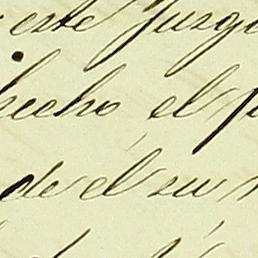 este Juzg
hecho el p
de él su